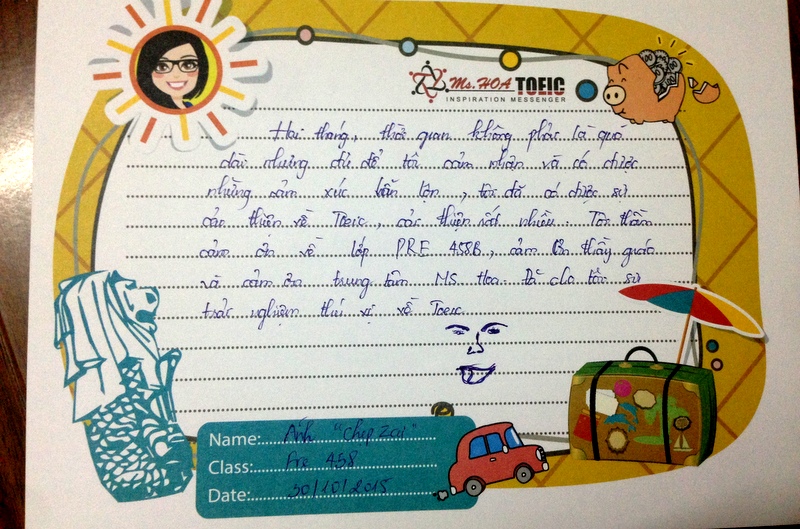 Ms. HOA TOEIC
INSPIRATION MESSENGER
Hai tháng, thời gian không phải là quá
dài nhưng đủ để tôi cảm nhận và có được
những cảm xúc lẫn lộn, tôi đã có được sự
cải thiện về Toeic, cải thiện rất nhiều. Tôi thầm
cảm ơn về lớp PRE 458B, cảm ơn thầy giáo
và cảm ơn trung tâm MS Hoa đã cho tôi sự
trải nghiệm thú vị về Toeic
Name: Ánh
Class: Pre 458
Date: 30/10/2015